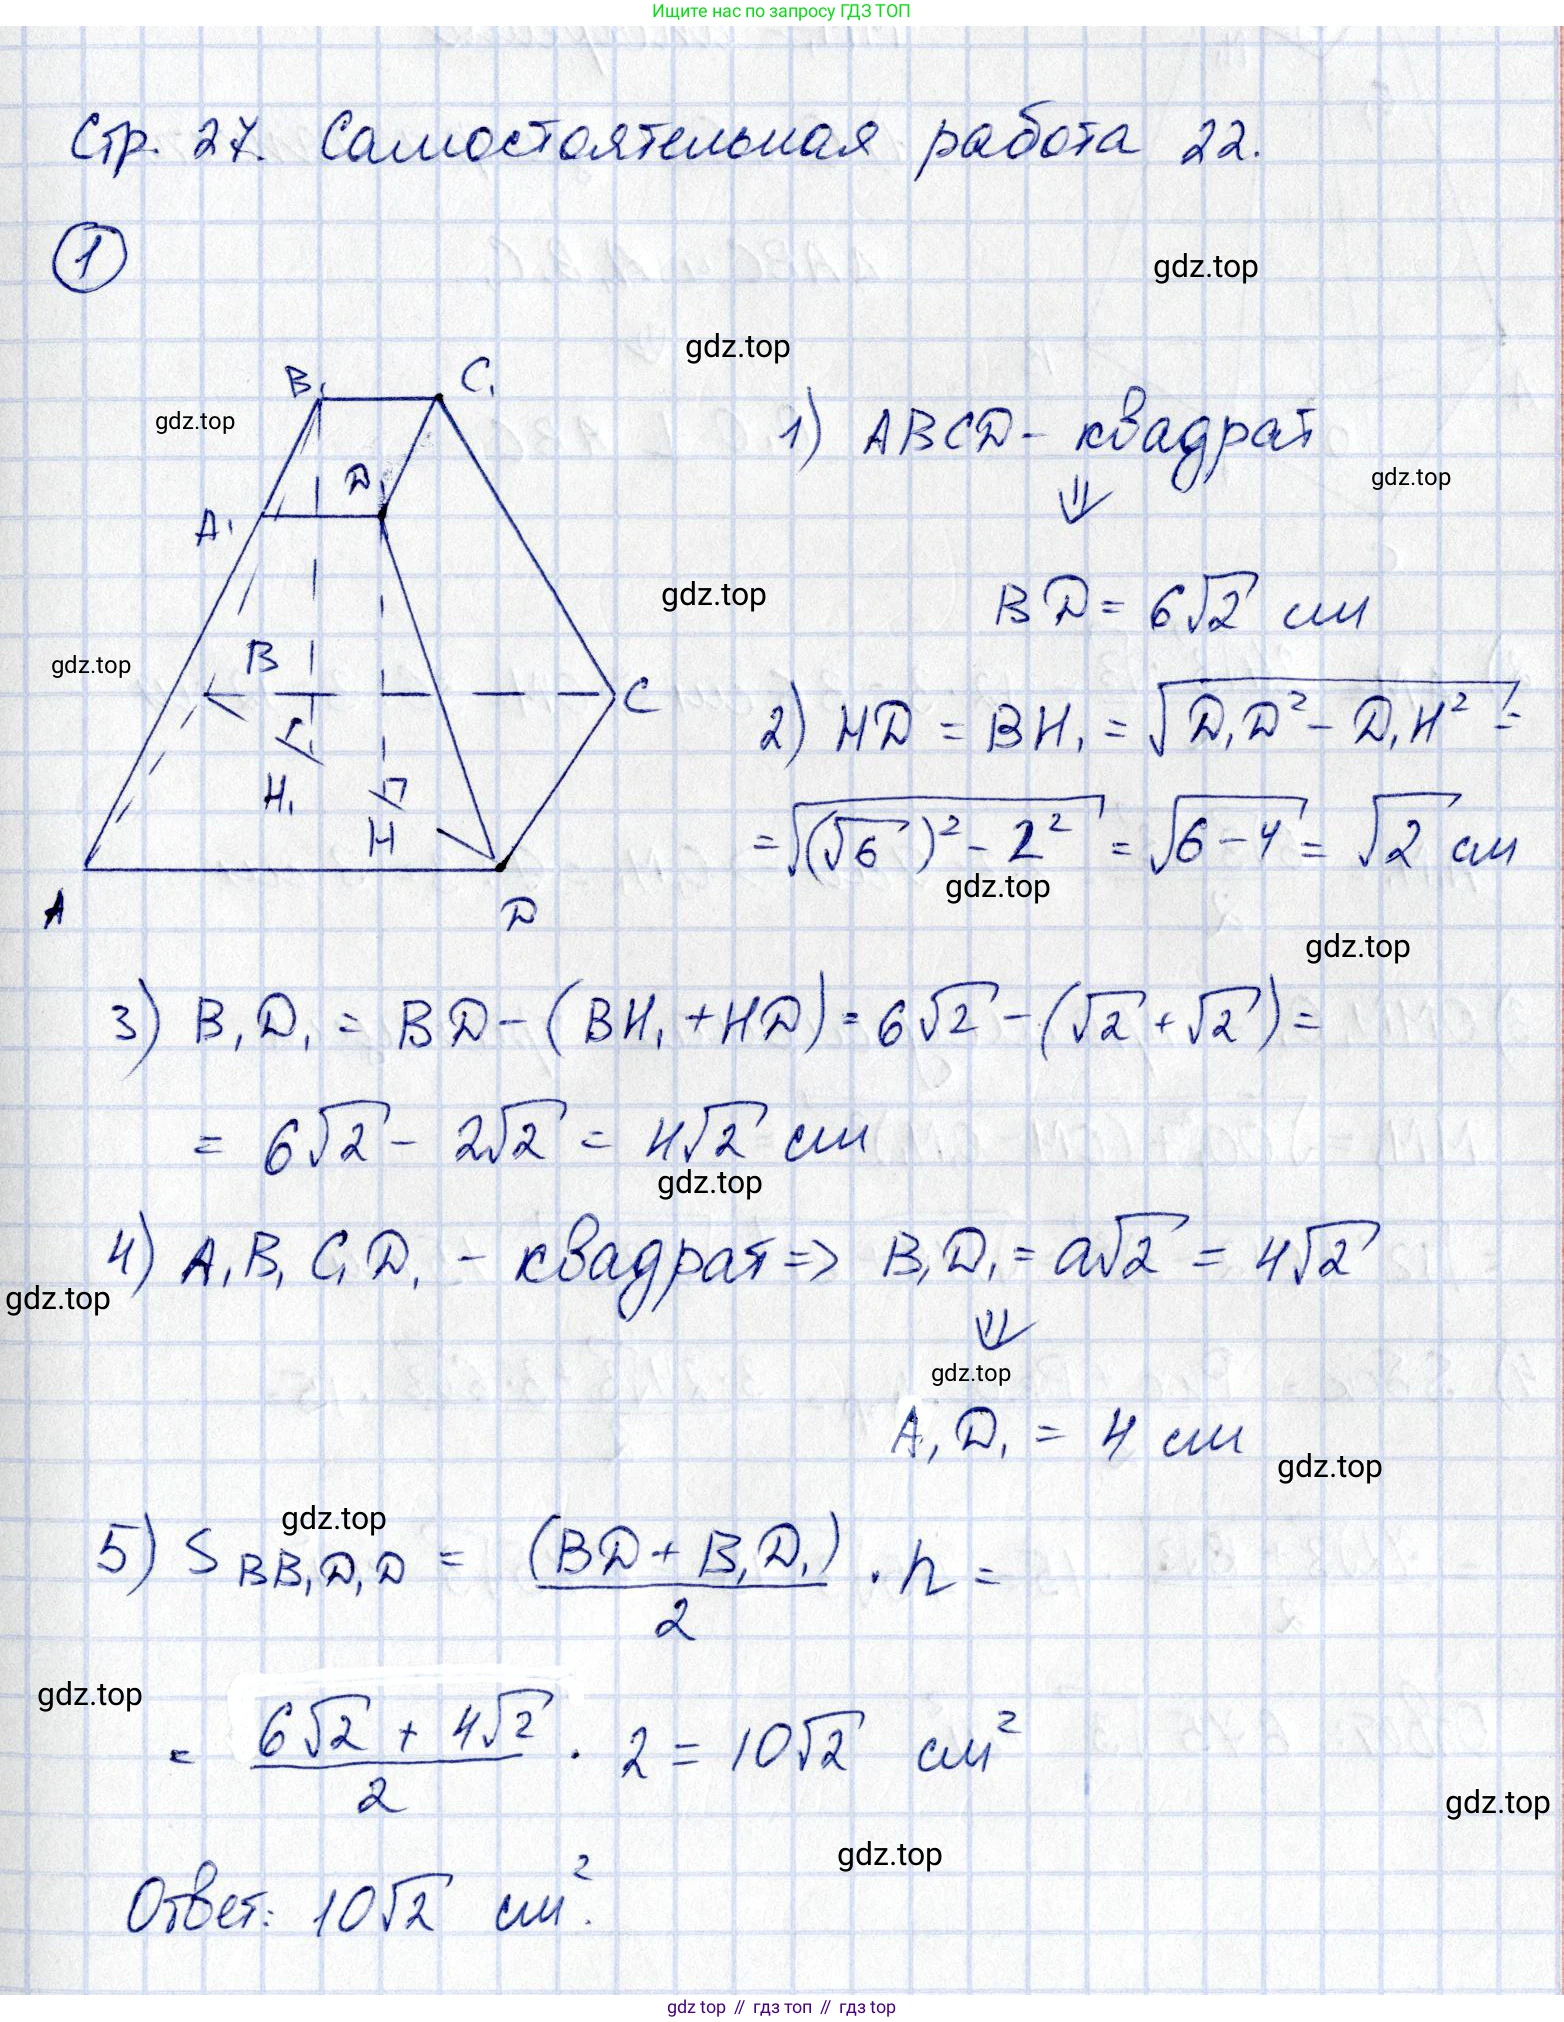 Ищите нас по запросу ГДЗ ТОП
Стр. 27. Самостоятельная работа 22.
1
gdz.top
gdz.top
B₁ C₁
gdz.top
1) ABCD - квадрат
D₁
gdz.top
A₁
⇓
BD = 6√2 см
gdz.top
gdz.top
B
C
2) HD = BH₁ = √(D₁D² - D₁H²) =
H₁
H
= √((√6)² - 2²) = √(6-4) = √2 см
gdz.top
A
D
gdz.top
3) B₁D₁ = BD - (BH₁ + HD) = 6√2 - (√2 + √2) =
= 6√2 - 2√2 = 4√2 см
gdz.top
4) A₁B₁C₁D₁ - квадрат => B₁D₁ = a√2 = 4√2
gdz.top
⇓
gdz.top
A₁D₁ = 4 см
gdz.top
gdz.top
5) S BB₁D₁D = (BD + B₁D₁)/2 · h =
gdz.top
= (6√2 + 4√2)/2 · 2 = 10√2 см²
gdz.top
gdz.top
Ответ: 10√2 см².
gdz top // гдз топ // гдз top